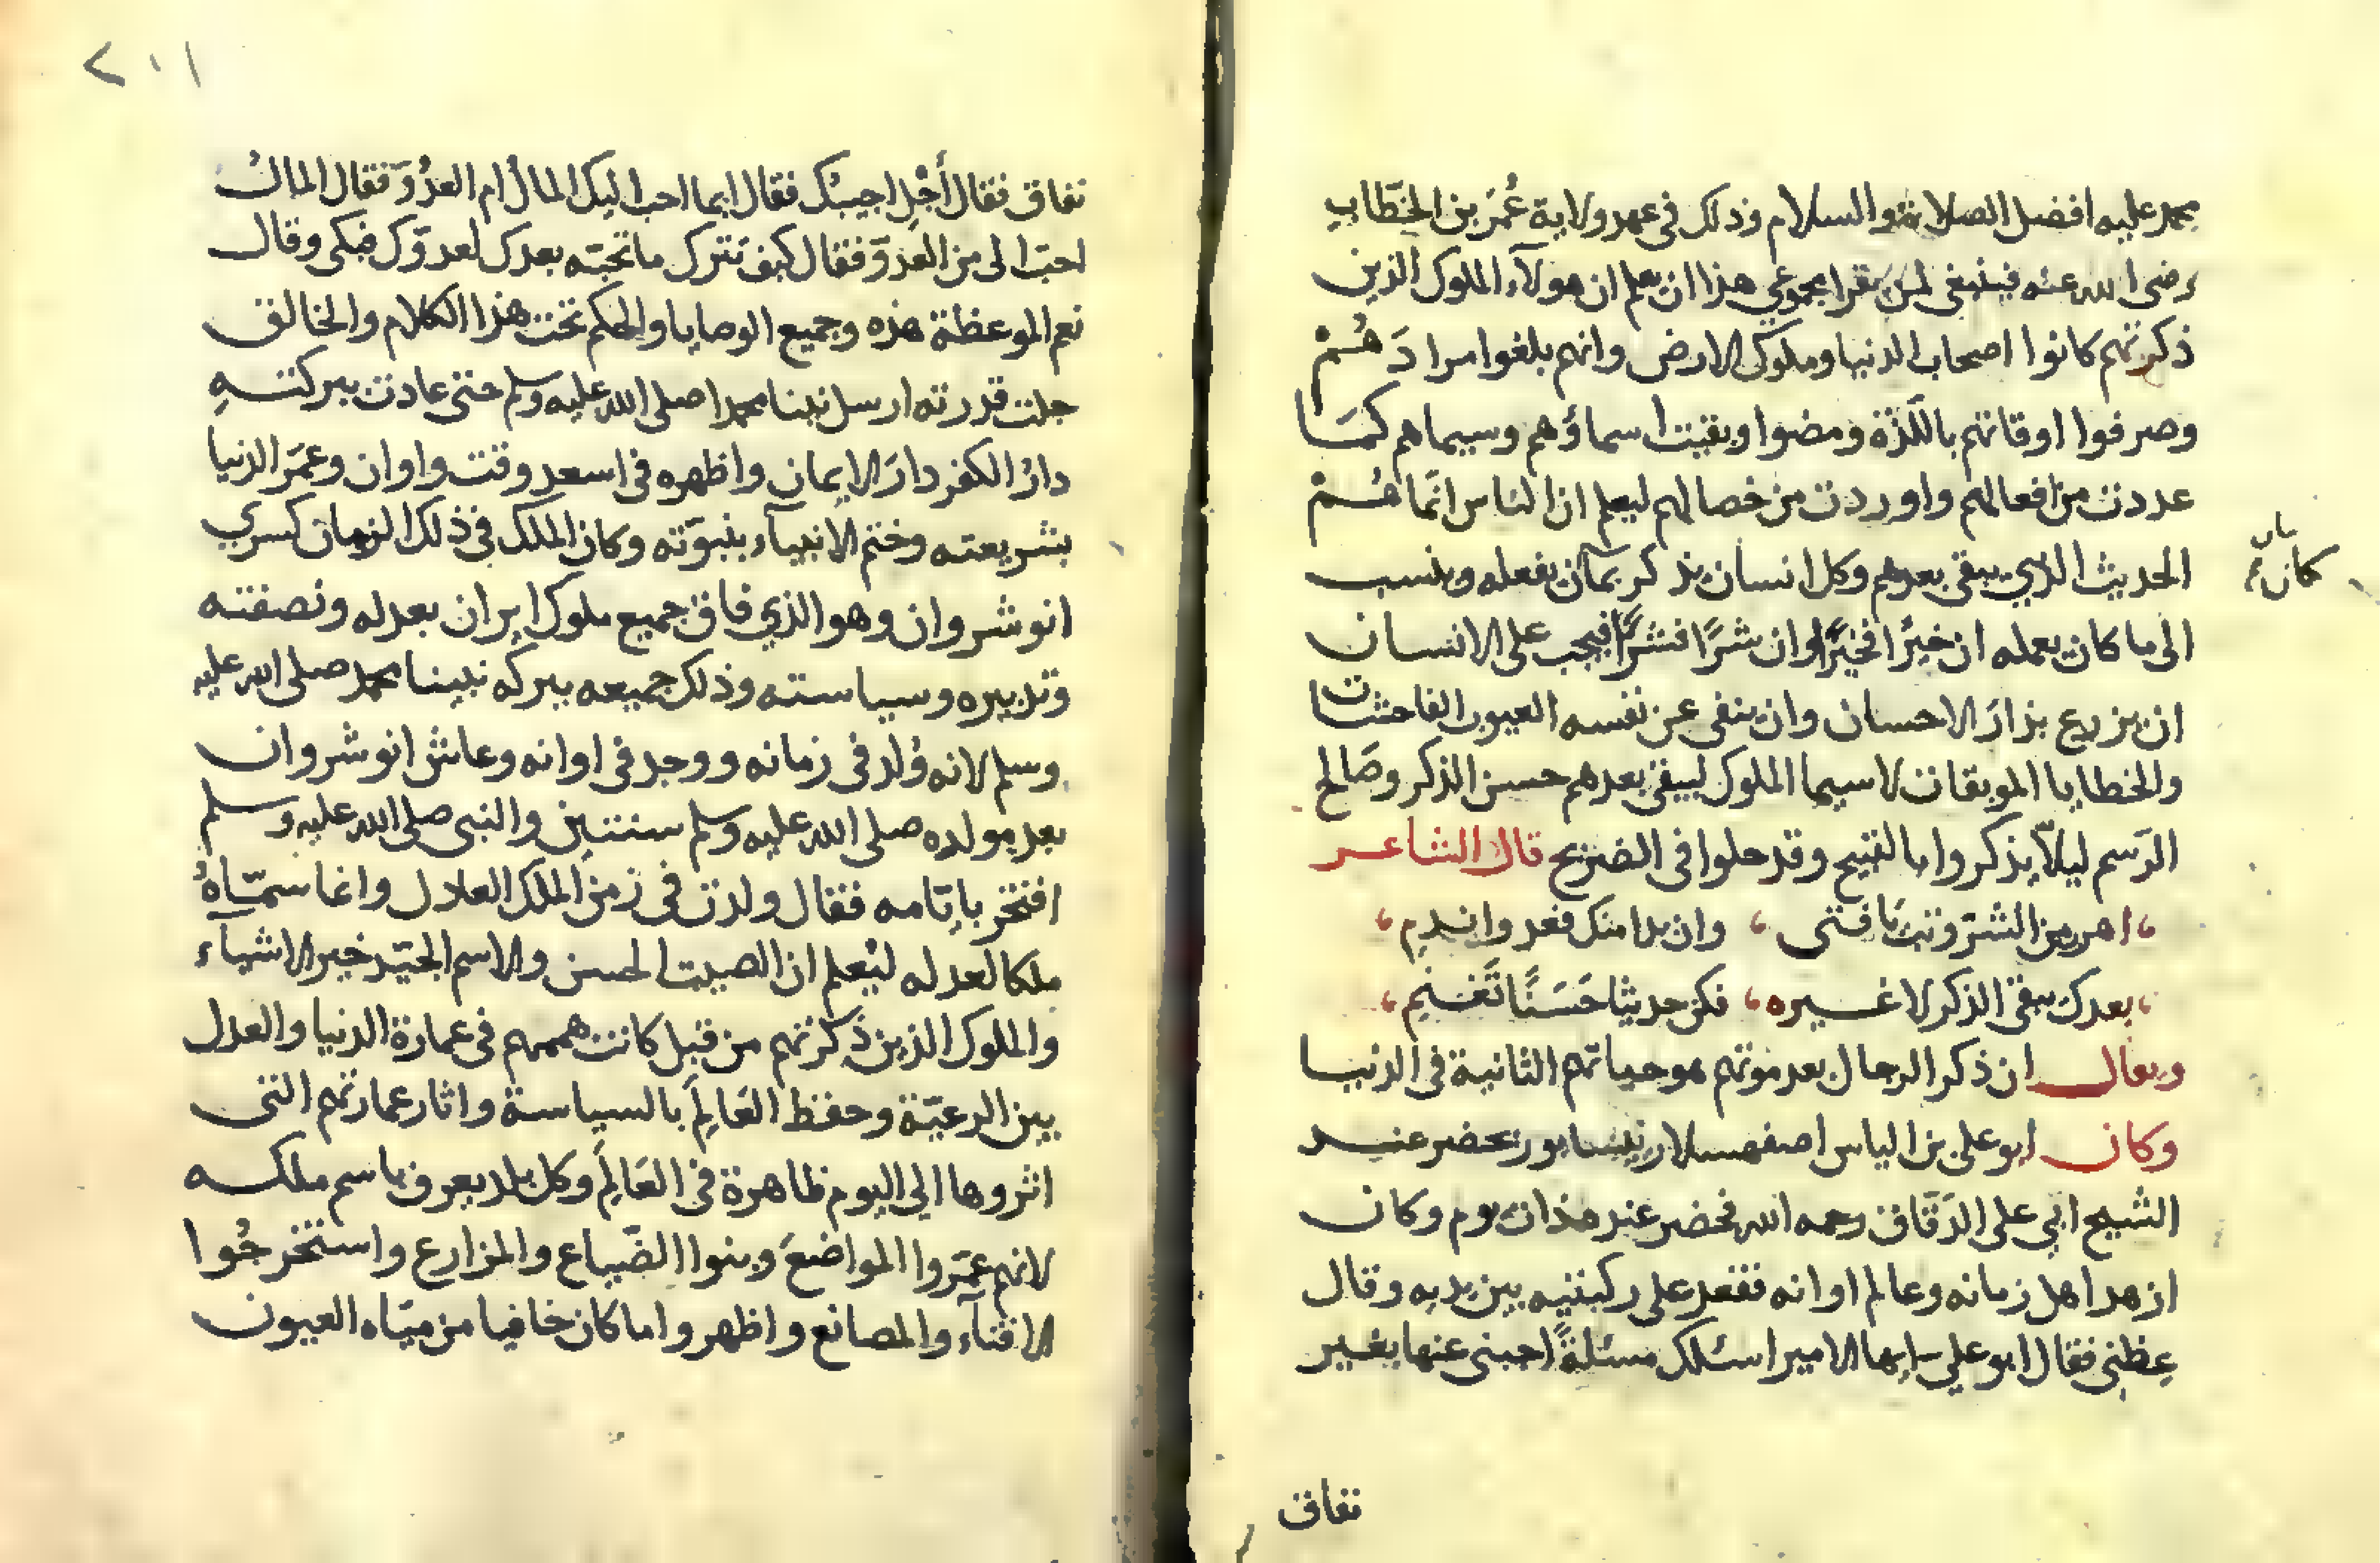 محمد عليه افضل الصلاة والسلام وذلك فى عهد ولاية عُمَر بن الخطّاب
رضى الله عنه فينبغى لمن يقرا مجموعي هذا ان يعلم ان هولآء الملوك الذين
ذكرتهم كانوا اصحاب الدنيا وملوك الارض وانهم بلغوا مرادَهُمْ
وصرفوا اوقاتهم باللّذة ومضوا وبقيت اسماؤهم وسيماهم كمَا
عددت من افعالهم واوردت من خصالهم ليعلم ان الناس انّما هُمْ
الحديث الذي يبقى بعدهم وكل انسان يذكر بما كان يفعله وينسب
بان
كان
الى ما كان يعمله ان خيرًا فخيرًا وان شرًا فشرًا فيجب على الانسان
ان يزرع بزارَ الاحسان وان ينفى عن نفسه العيوب الفاحشات
والخطايا الموبقات لاسيما الملوك ليبقى بعدهم حسن الذكر وصَالح
الرَسم ليلاّ يذكروا بالقبيح وقد حلوا فى الضريح قال الشاعر
اهرب من الشرّ وتب يَا فتى وان بدا منك فعد واندم
بعدك يبقى الذكر لا غيره فكن حديثا حَسَنًا تَغنم
ويقال ان ذكر الرجال بعد موتهم هو حياتهم الثانية فى الدنيا
وكان ابو على بن الياس اصفهسلار نيسابور يحضر عند
الشيخ ابي على الدَقّاق رحمه الله فحضر عنده ذات يوم وكان
ازهد اهل زمانه وعالم اوانه فقعد على ركبتيه بين يديه وقال
عِظني فقال ابو علي ايها الامير اسئلك مسئلةً اجبنى عنها بغير
نفاق
٢٠١
نفاق فقال أَجْل اجيبُك فقال ايما احب اليك المال ام العدُوّ فقال المالُ
احبّ الى من العدوّ فقال كيف تترك ما تحبّه بعدك لعدوّك فبكى وقال
نعم الموعظة هذه وجميع الوصايا والحكم تحت هذا الكلام والخالق
جلت قدرته ارسل نبينا محمدا صلى الله عليه وسلم حتى عادت ببركتهِ
دارُ الكفر دارَ الايمان واظهره فى اسعد وقت واوان وعمَر الدنيا
بشريعته وختم الانبيآء بنبوّته وكان الملك في ذلك الزمان كسري
انوشروان وهو الذي فاق جميع ملوك ايران بعدله ونصفته
وتدبيره وسياسته وذلك جميعه ببركه نبينا محمد صلى الله عليه
وسلم لانه وُلد فى زمانه ووجد فى اوانه وعاش انوشروان
بعد مولده صلى الله عليه وسلم سنتين والنبى صلى الله عليه وسلم
افتخر باِيّامه فقال ولدت فى زمن الملك العادل وانما سمّاهُ
ملكا لعدله ليُعلم ان الصيت الحسن والاسم الجيّد خير الاشيآء
والملوك الذين ذكرتهم من قبل كانت هممهم فى عمارة الدنيا والعدل
بين الرعيّة وحفظ العَالِمَ بالسياسة واثار عمارتهم التى
اثروها الي اليوم ظاهرة فى العَالِمَ وكل بلد يعرف باسم ملكه
لانهم عمّروا المواضعَ وبنوا الضّياع والمزارع واستخرجُوا
الاقنآء والمصانع واظهروا ما كان خافيا من ميّاه العيون